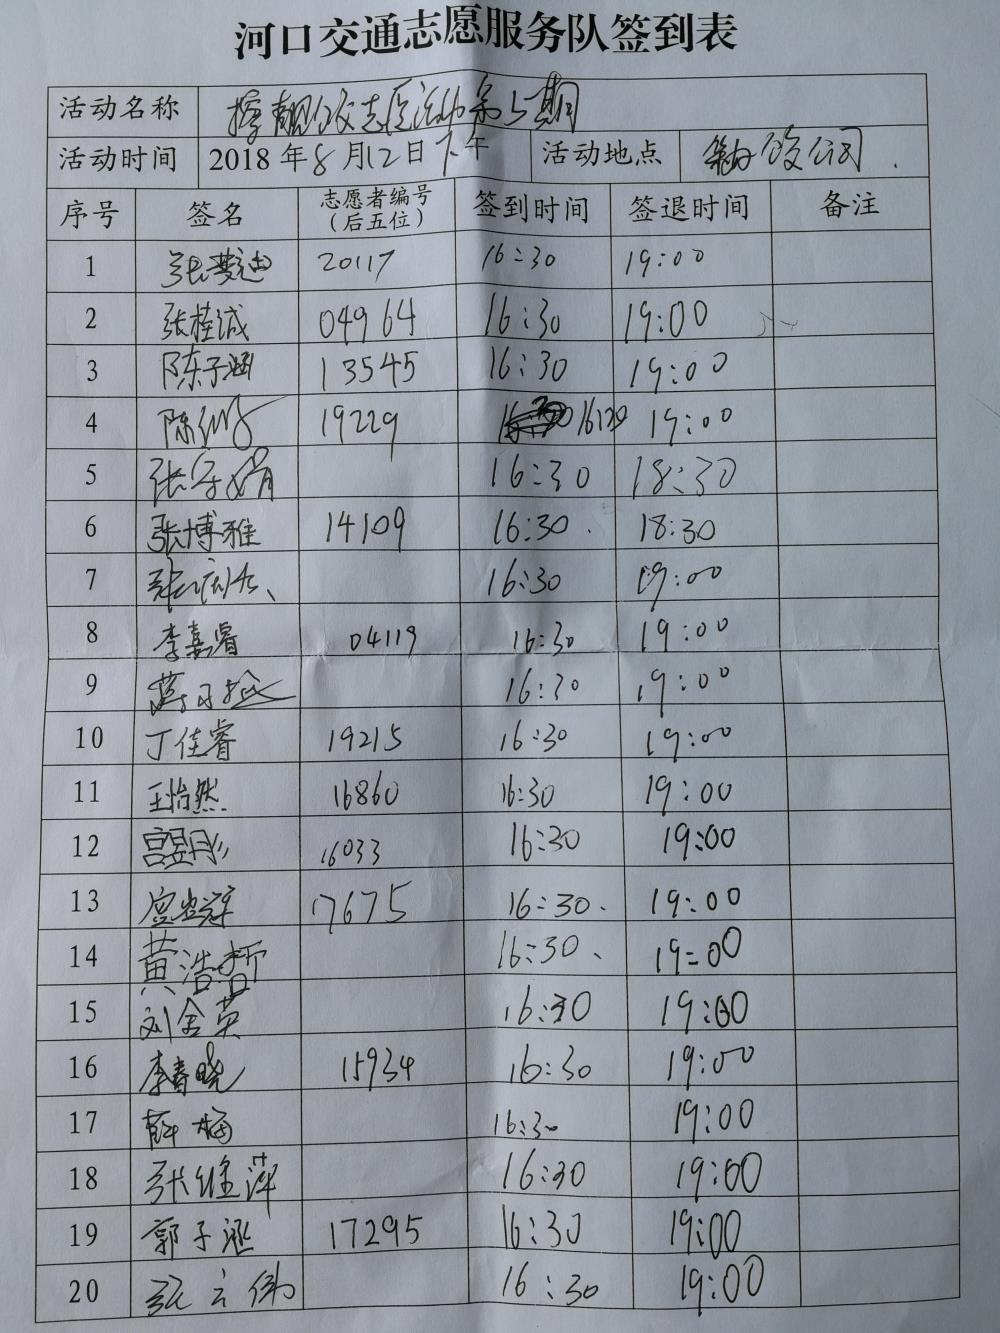 河口交通志愿服务队签到表
活动名称 志 第 期
活动时间 2018年8月12日下午 活动地点 公司
序号 签名 志愿者编号（后五位） 签到时间 签退时间 备注
1 张梦迪 20117 16:30 19:00
2 张桂诚 04964 16:30 19:00
3 陈子涵 13545 16:30 19:00
4 陈 19229 16:30 19:00
5 张 16:30 18:30
6 张博雅 14109 16:30 18:30
7 张 16:30 19:00
8 李嘉睿 04119 16:30 19:00
9 16:30 19:00
10 丁佳睿 19215 16:30 19:00
11 王怡然 16860 16:30 19:00
12 宫昱彤 16033 16:30 19:00
13 17675 16:30 19:00
14 黄浩哲 16:30 19:00
15 刘金英 16:30 19:00
16 李春晓 15934 16:30 19:00
17 薛梅 16:30 19:00
18 张维萍 16:30 19:00
19 郭子涵 17295 16:30 19:00
20 张 16:30 19:00